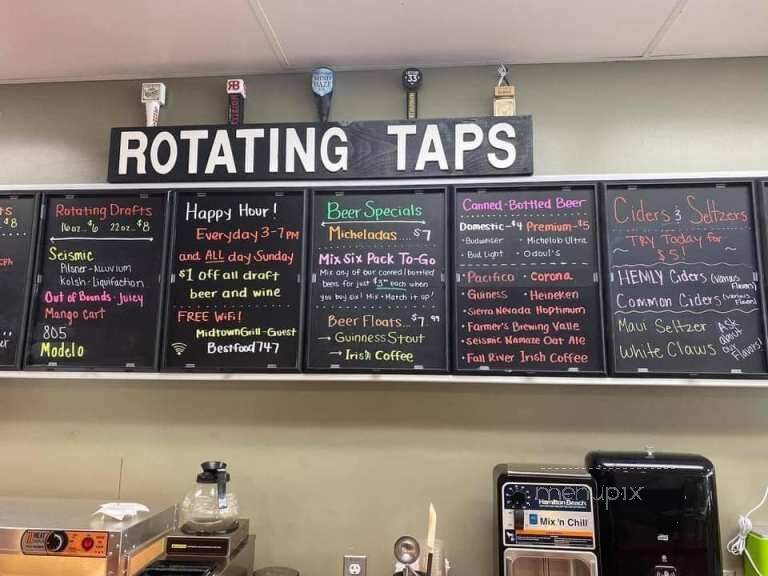 ROTATING TAPS
33
$8
Rotating Drafts
16oz...$6 22oz...$8
Seismic
Pilsner-Alluvium
Kolsh-Liquifaction
Out of Bounds-Juicy
Mango Cart
805
Modelo
Happy Hour!
Everyday 3-7PM
and ALL day Sunday
$1 Off all draft
beer and wine
FREE WiFi!
MidtownGrill-Guest
Bestfood747
Beer Specials
Micheladas....$7
Mix Six Pack To-Go
Mix any of our canned/bottled
beers for just $3 each when
you buy six! Mix-Match it up!
Beer Floats...$7.99
Guinness Stout
Irish Coffee
Canned-Bottled Beer
Domestic-$4 Premium-$5
• Budwiser • Michelob Ultra
• Bud Light • Odoul's
• Pacifico • Corona
• Guiness • Heineken
• Sierra Nevada Hoptimum
• Farmer's Brewing Valle
• Seismic Namaze Oat Ale
• Fall River Irish Coffee
Ciders & Seltzers
TRY Today for
$5!
HENLY Ciders (Various Flavors)
Common Ciders (Various Flavors)
Maui Seltzer
White Claws
Ask
about
our
Flavors!
menupix
Hamilton Beach
Mix 'n Chill